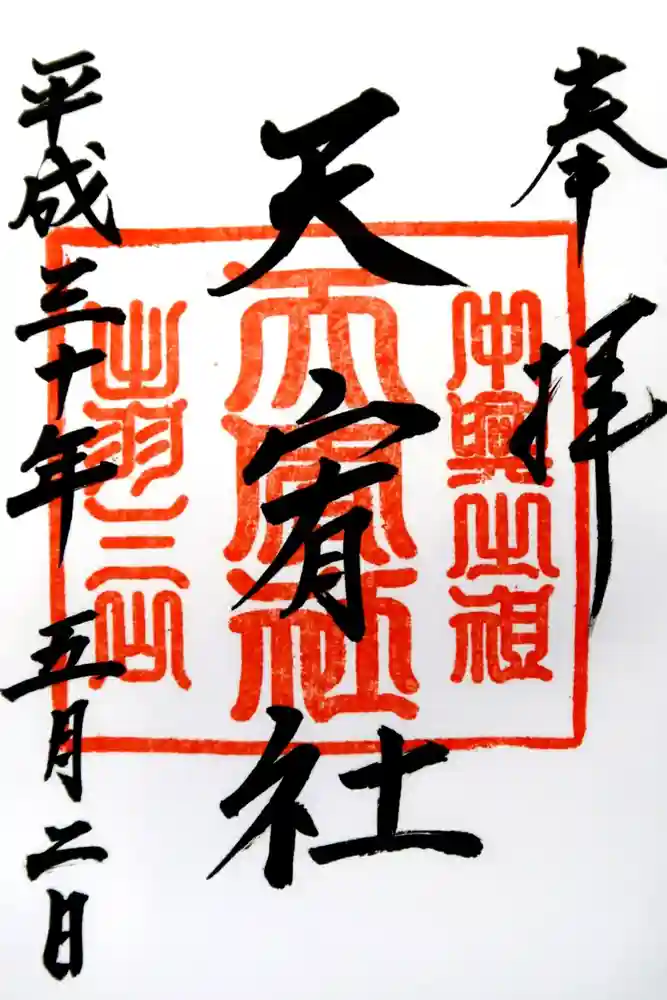 奉拝
中興之祖
天宥社
天宥社
出羽三山
平成三十年五月二日